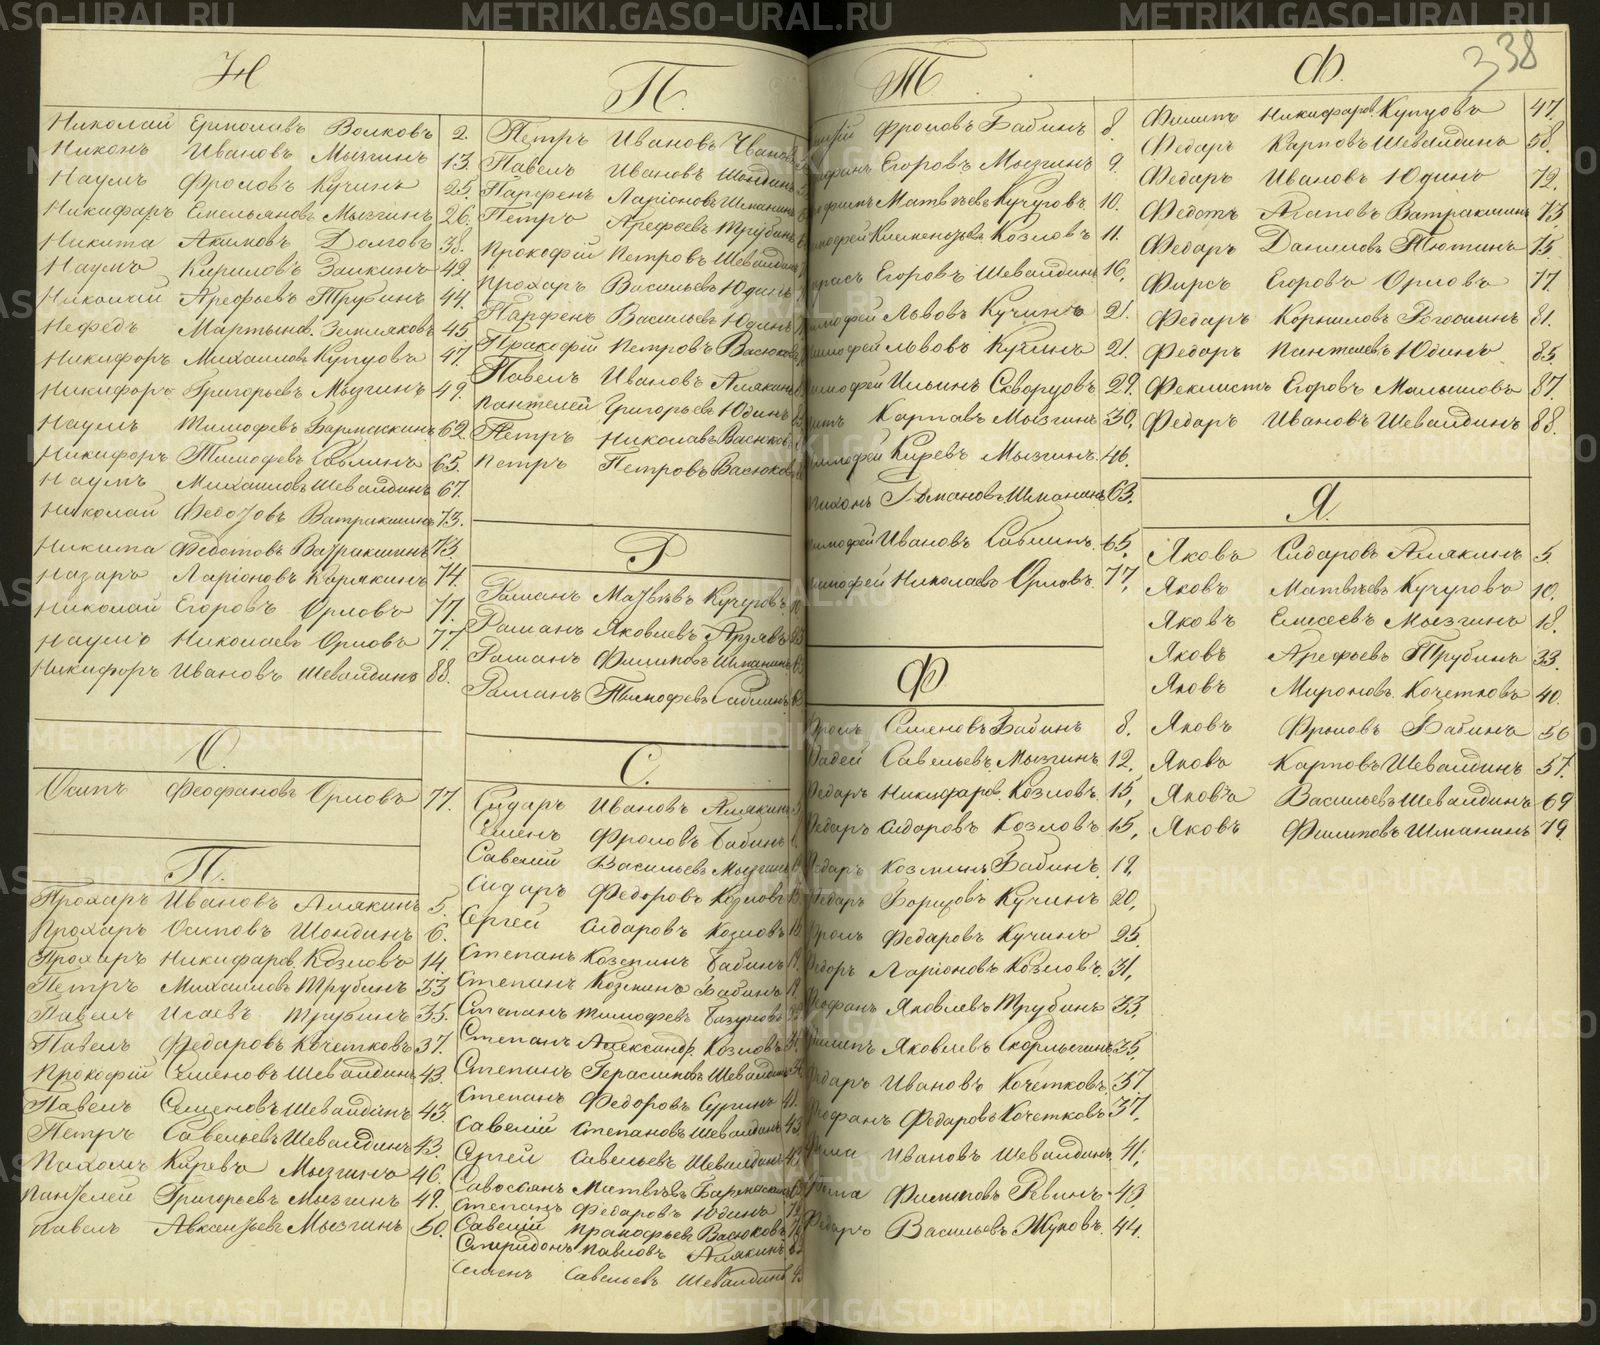 Н
Николай Ермолаевъ Волковъ 2.
Никонъ Ивановъ Мызгинъ 13.
Наумъ Фроловъ Кучинъ 25.
Никифаръ Емельяновъ Мызгинъ 26.
Никита Акимовъ Долговъ 38.
Наумъ Кириловъ Заикинъ 42.
Николай Арефьевъ Трубинъ 44.
Нефедъ Мартынов. Земляковъ 45.
Никифоръ Михаиловъ Купцовъ 47.
Никифоръ Григорьевъ Мызгинъ 49.
Наумъ Тимофевъ Бармаскинъ 62.
Никифоръ Тимофевъ Саблинъ 65.
Наумъ Михаиловъ Шевалдинъ 67.
Николай Федотовъ Ватракшинъ 73.
Никита Федотовъ Ватракшинъ 73.
Назаръ Ларіоновъ Карякинъ 74.
Николай Егоровъ Орловъ 77.
Наумъ Николаевъ Орловъ 77.
Никифоръ Ивановъ Шевалдинъ 88.
О.
Осипъ Феофановъ Орловъ 77.
П.
Прохаръ Ивановъ Алякинъ 5.
Прохаръ Осиповъ Шондинъ 6.
Прохаръ Никифаров. Козловъ 14.
Петръ Михаиловъ Трубинъ 33
Павелъ Исаевъ Трубинъ 35.
Павелъ Федаровъ Кочетковъ 37.
Прокофій Семеновъ Шевалдинъ 43.
Павелъ Семеновъ Шевалдинъ 43.
Петръ Савельевъ Шевалдинъ 43.
Пахомъ Киревъ Мызгинъ 46.
Пантелей Григорьевъ Мызгинъ 49.
Павелъ Авксентьевъ Мызгинъ 50.
П.
Петръ Ивановъ
Павелъ Ивановъ Шондинъ
Парфенъ Ларіоновъ Шманинъ
Петръ Арефьевъ Трубинъ
Прокофій Петровъ Шевалдинъ
Прохаръ Васильевъ Юдинъ
Парфенъ Васильевъ Юдинъ
Пракофій Петровъ Васюковъ
Павелъ Ивановъ Алякинъ
Пантелей Григорьевъ Юдинъ
Петръ Николаевъ Васюков
Петръ Петровъ Васюков
Р
Раманъ Матвѣевъ Кучуровъ
Раманъ Яковлевъ
Раманъ Филиповъ Шманинъ
Раманъ Тимофевъ Саблинъ
С.
Сидаръ Ивановъ Алякинъ
Семенъ Фроловъ Бабинъ
Савелій Васильевъ Мызгинъ
Сидаръ Федоровъ Козловъ
Сергей Сидаровъ Козловъ
Степанъ Козминъ Бабинъ
Степанъ Козминъ Бабинъ
Степанъ Тимофевъ
Степанъ Александр. Козловъ
Степанъ Герасимовъ Шевалдинъ
Степанъ Федоровъ Суринъ 41.
Савелій Степановъ Шевалдинъ 43
Сергей Савельевъ Шевалдинъ
Савосьянъ Матвѣевъ Бармаскинъ
Степанъ Федаровъ Юдинъ
Савелій Пракофьевъ Васюковъ
Спиридонъ Павловъ Алякинъ
Семенъ Савельевъ Шевалдинъ
Т
Фроловъ Бабинъ 8.
Егоровъ Мызгинъ 9.
Матвѣевъ Кучуровъ 10.
Клементьевъ Козловъ 11.
Егоровъ Шевалдинъ 16.
Львовъ Кучинъ 21.
Львовъ Кучинъ 21.
Ильинъ Скварцовъ 29.
Карпавъ Мызгинъ 30,
Киревъ Мызгинъ 46.
Шманинъ 63.
Ивановъ Саблинъ 65,
Николаевъ Орловъ 77,
Ф
Семеновъ Бабинъ 8.
Савельевъ Мызгинъ 12,
Никифаров. Козловъ 15,
Сидаровъ Козловъ 15,
Козминъ Бабинъ 19,
Борисовъ Кучинъ 20,
Федаровъ Кучинъ 25.
Ларіоновъ Козловъ 31,
Яковлевъ Трубинъ 33.
Яковлевъ Скорлыгинъ 35,
Ивановъ Кочетковъ 37
Федаровъ Кочетковъ 37,
Ивановъ Шевалдинъ 41,
Филиповъ Ревинъ 43,
Васильевъ Жуковъ 44.
338
Ф.
Филипъ Никифаров Купцовъ 47.
Федаръ Карповъ Шевалдинъ 58.
Федаръ Ивановъ Юдинъ 72.
Федотъ Агаповъ Ватракшинъ 73,
Федаръ Даниловъ Тютинъ 75.
Фирсъ Егоровъ Орловъ 77.
Федаръ Корниловъ Рогошинъ 81.
Федаръ Пантелевъ Юдинъ 85
Феклистъ Егоровъ Малышовъ 87.
Федаръ Ивановъ Шевалдинъ 88.
Я.
Яковъ Сидаровъ Алякинъ 5.
Яковъ Матвѣевъ Кучуровъ 10.
Яковъ Елисеевъ Мызгинъ 18.
Яковъ Арефьевъ Трубинъ 33.
Яковъ Мироновъ Кочетковъ 40.
Яковъ Фроловъ Бабинъ 56
Яковъ Карповъ Шевалдинъ 57.
Яковъ Васильевъ Шевалдинъ 69
Яковъ Филиповъ Шманинъ 79.
METRIKI.GASO-URAL.RU